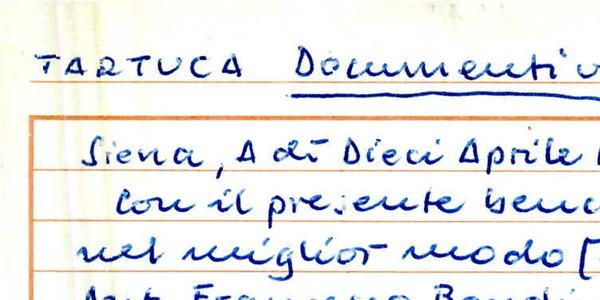 TARTUCA Documenti
Siena, A dì Dieci Aprile
Con il presente
nel miglior modo [
Francesco